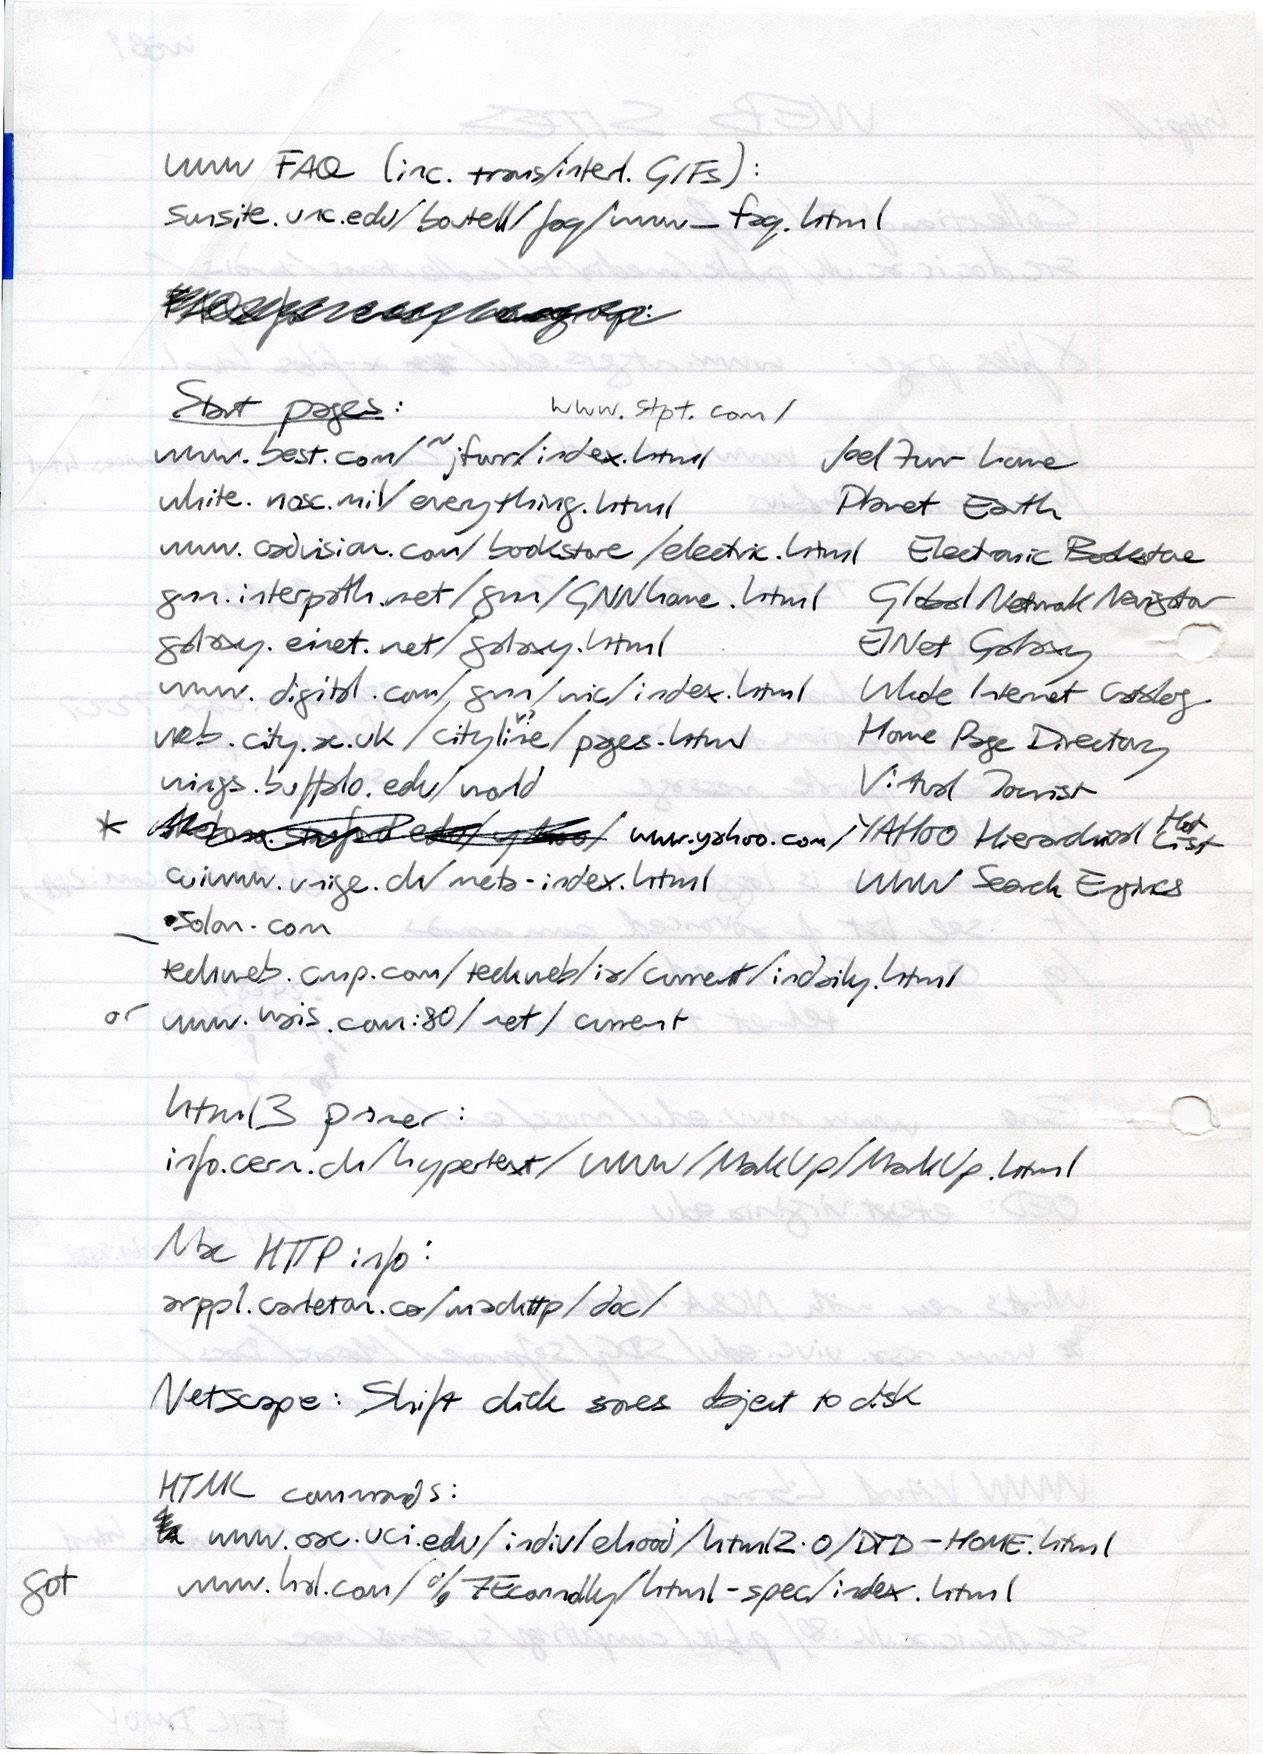 WWW FAQ (inc. trans/interl. GIFs):
sunsite.unc.edu/boutell/faq/www_faq.html
Start pages: www.stpt.com/
www.best.com/~jfurr/index.html Joel Furr home
white.nosc.mil/everything.html Planet Earth
www.cadvision.com/bookstore/electric.html Electronic Bookstore
gnn.interpath.net/gnn/GNNhome.html Global Network Navigator
galaxy.einet.net/galaxy.html EINet Galaxy
www.digital.com/gnn/wic/index.html Whole Internet Catalog
web.city.ac.uk/cityline/pages.html Home Page Directory
wings.buffalo.edu/world Virtual Tourist
* www.yahoo.com/ YAHOO Hierarchical Hot List
cuiwww.unige.ch/meta-index.html WWW Search Engines
solan.com
techweb.cmp.com/techweb/ia/current/indaily.html
or www.wais.com:80/net/current
html3 parser:
info.cern.ch/hypertext/WWW/MarkUp/MarkUp.html
Mac HTTP info:
arppl.carleton.ca/machttp/doc/
Netscape: Shift click saves object to disk
HTML commands:
www.oac.uci.edu/indiv/ehood/html2.0/DTD-HOME.html
got www.hal.com/%7Econnolly/html-spec/index.html